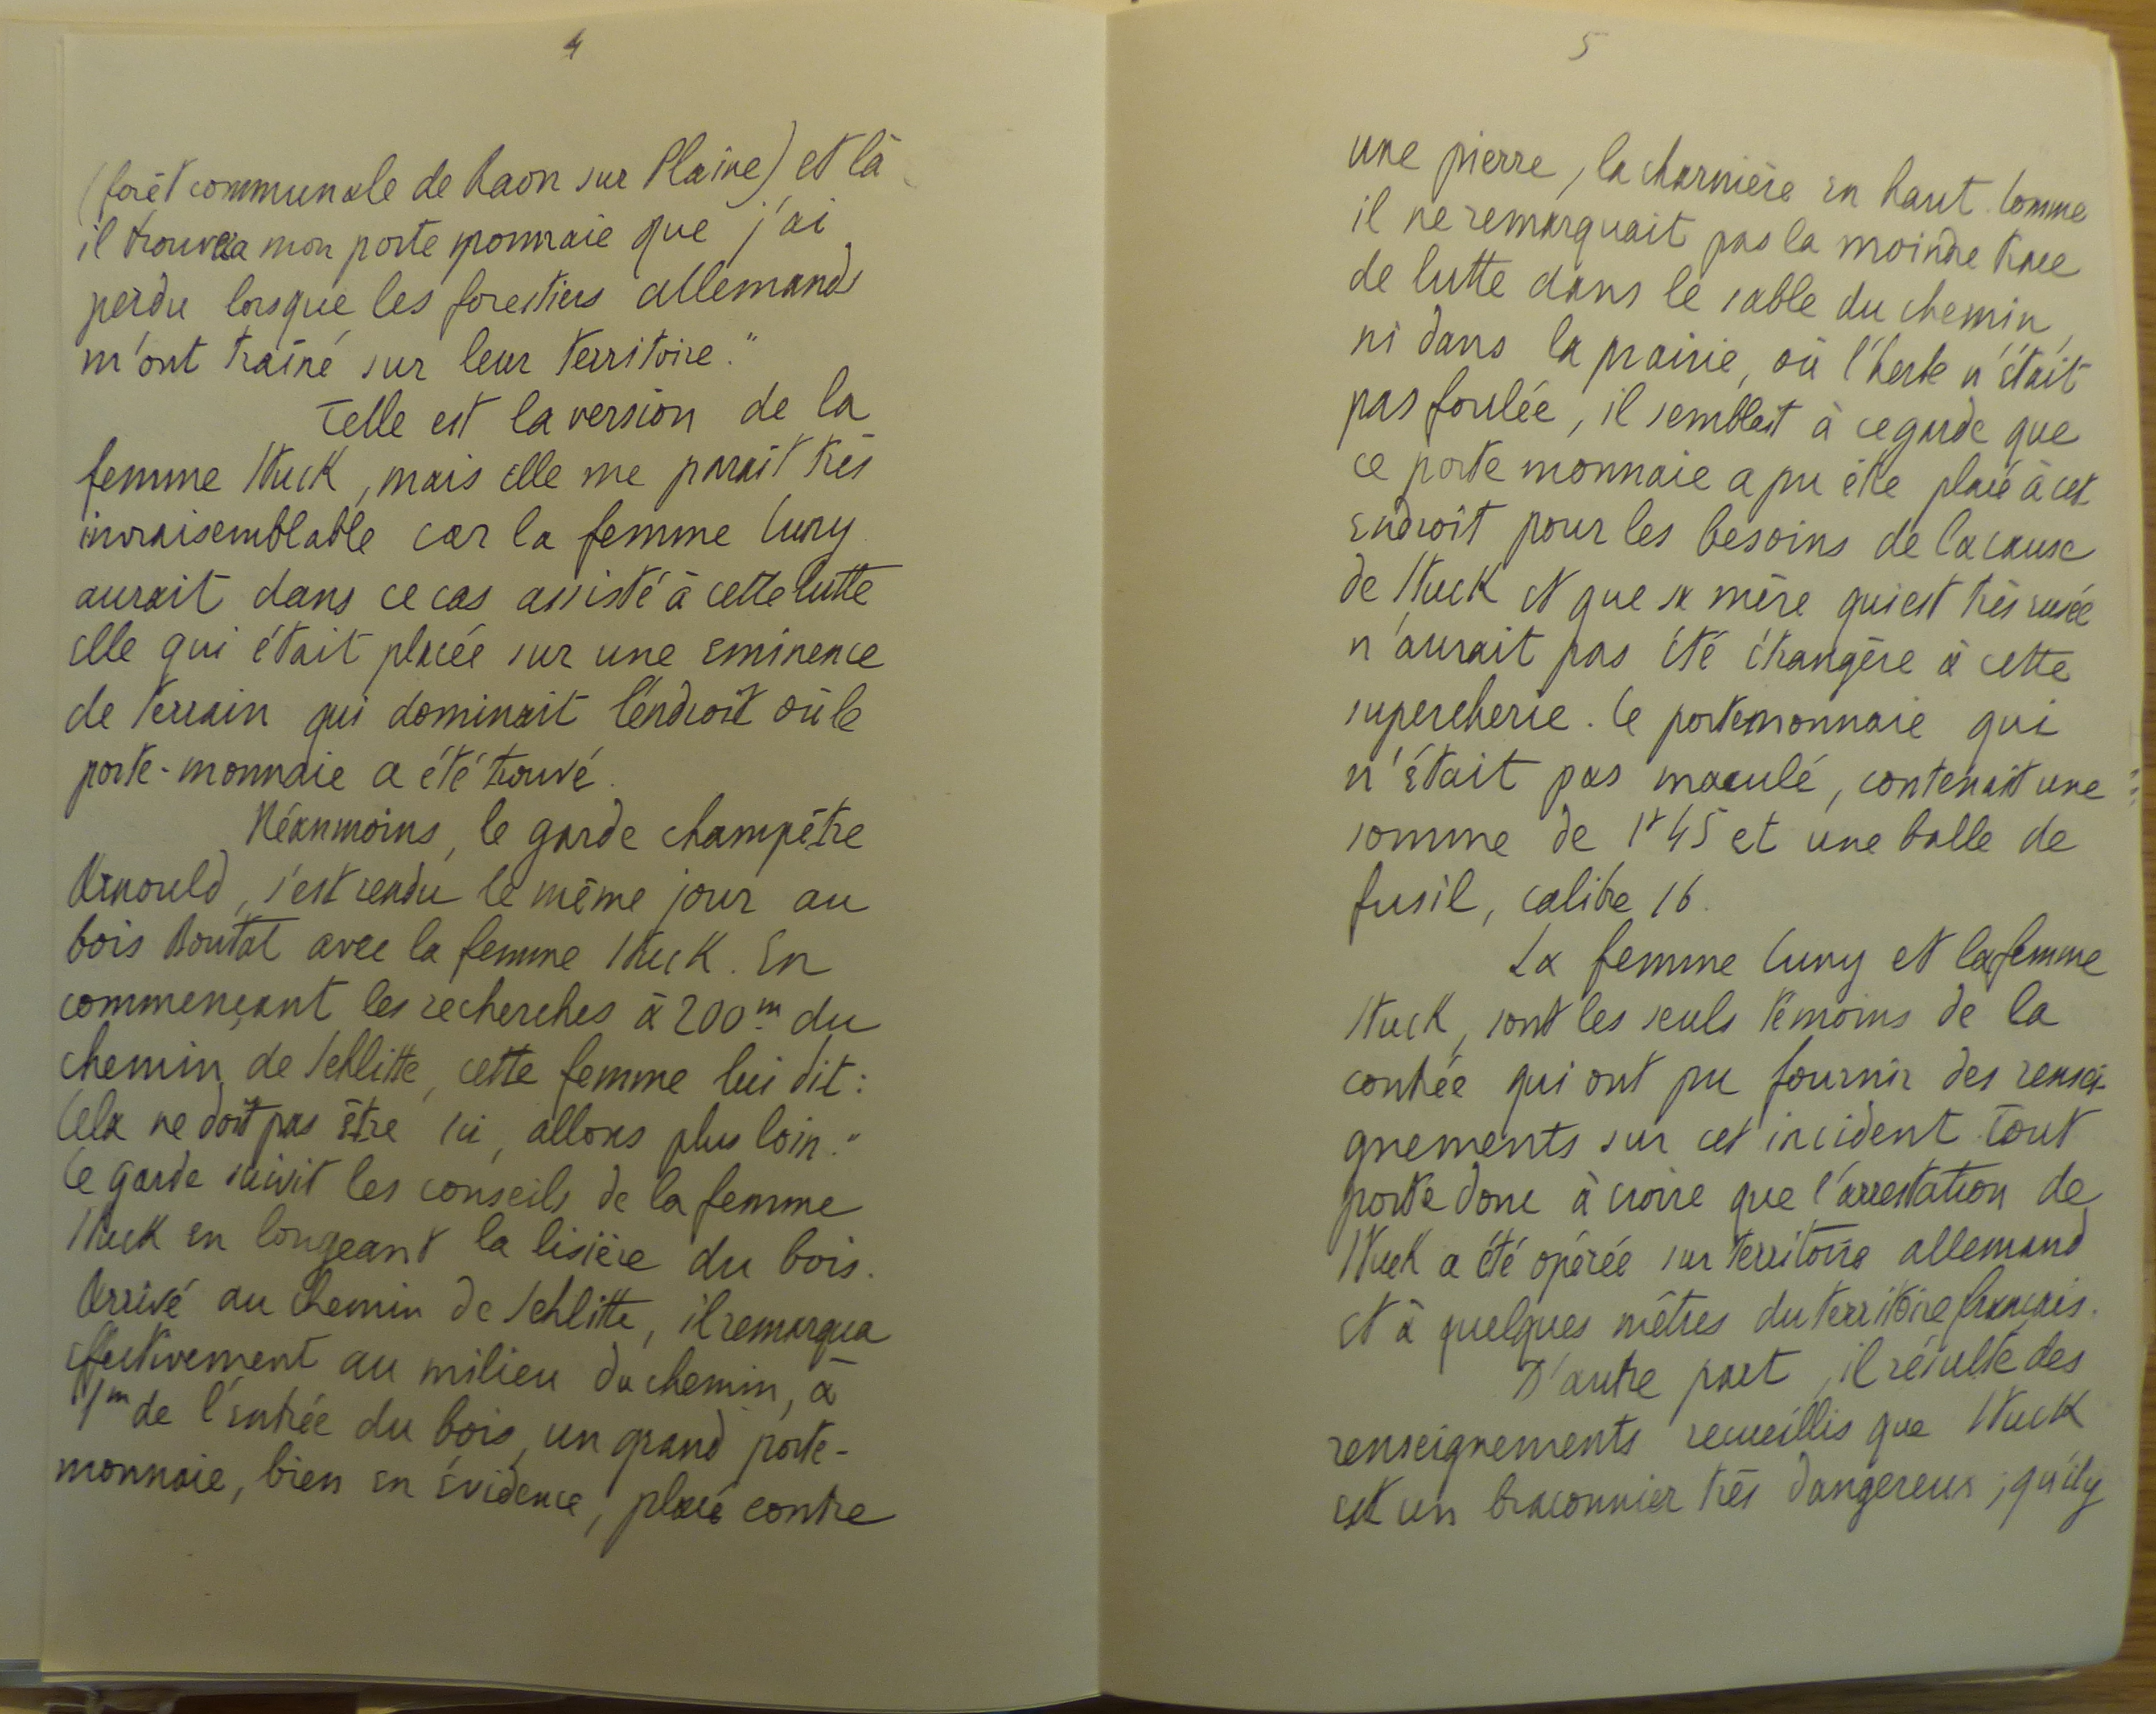 4
(forêt communale de Raon sur Plaine) et là
il trouvera mon porte monnaie que j'ai
perdu lorsque les forestiers allemands
m'ont traîné sur leur territoire."
Telle est la version de la
femme Stuck, mais elle me parait très
invraisemblable car la femme Cuny
aurait dans ce cas assisté à cette lutte
elle qui était placée sur une eminence
de terrain qui dominait l'endroit où le
porte-monnaie a été trouvé.
Néanmoins, le garde champêtre
Arnould, s'est rendu le même jour au
bois Boutat avec la femme Stuck. En
commençant les recherches à 200m du
chemin de Schlitte, cette femme lui dit:
Cela ne doit pas être ici, allons plus loin."
Le garde suivit les conseils de la femme
Stuck en longeant la lisière du bois.
Arrivé au chemin de Schlitte, il remarqua
effectivement au milieu du chemin, à
1m de l'entrée du bois, un grand porte-
monnaie, bien en évidence, placé contre
5
une pierre, la charnière en haut. Comme
il ne remarquait pas la moindre trace
de lutte dans le sable du chemin,
ni dans la prairie, où l'herbe n'était
pas foulée, il semblait à ce garde que
ce porte monnaie a pu être placé à cet
endroit pour les besoins de la cause
de Stuck et que sa mère qui est très rusée
n'aurait pas été étrangère à cette
supercherie. Ce portemonnaie qui
n'était pas maculé, contenait une
somme de 1f45 et une balle de
fusil, calibre 16.
La femme Cuny et la femme
Stuck, sont les seuls témoins de la
contrée qui ont pu fournir des rensei-
gnements sur cet incident. Tout
porte donc à croire que l'arrestation de
Stuck a été opérée sur territoire allemand
et à quelques mètres du territoire français.
D'autre part, il résulte des
renseignements recueillis que Stuck
est un braconnier très dangereux; qu'il y